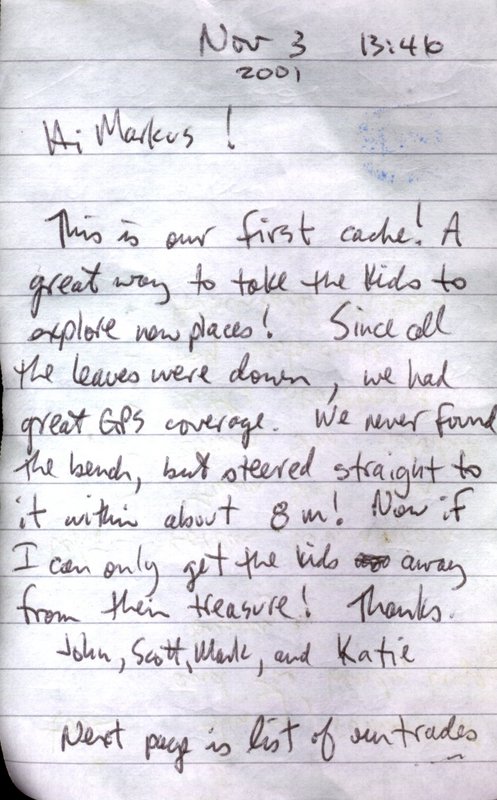 Nov 3 13:46
2001
Hi Markus!
This is our first cache! A
great way to take the kids to
explore new places! Since all
the leaves were down, we had
great GPS coverage. We never found
the bench, but steered straight to
it within about 8 m! Now if
I can only get the kids away
from their treasure! Thanks.
John, Scott, Mark, and Katie
Next page is list of our trades